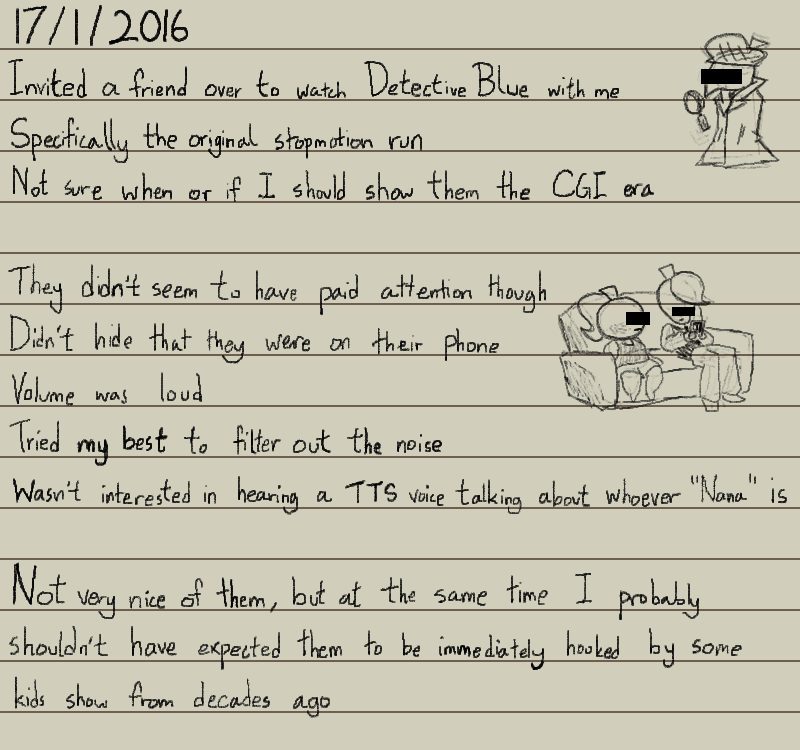 17/1/2016
Invited a friend over to watch Detective Blue with me
Specifically the original stopmotion run
Not sure when or if I should show them the CGI era
They didn't seem to have paid attention though
Didn't hide that they were on their phone
Volume was loud
Tried my best to filter out the noise
Wasn't interested in hearing a TTS voice talking about whoever "Nana" is
Not very nice of them, but at the same time I probably
shouldn't have expected them to be immediately hooked by some
kids show from decades ago